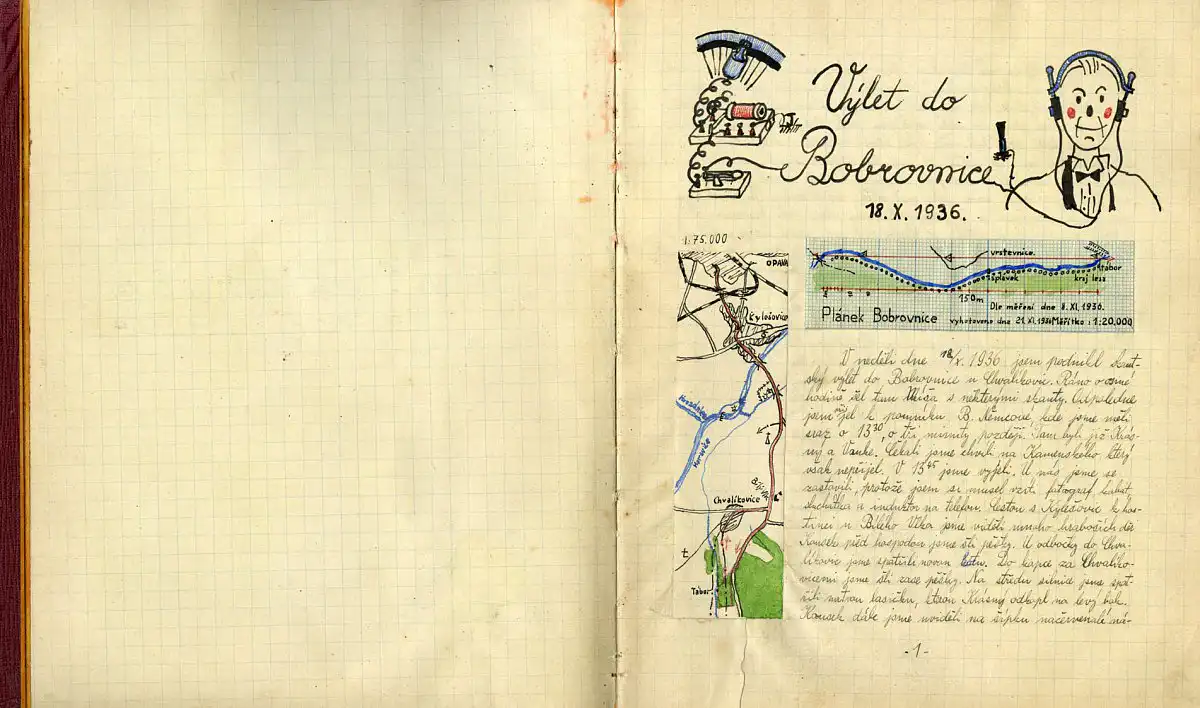 Výlet do
Bobrovnice
18. X. 1936.
1:75.000
OPAVA
Kylešovice
Hvozdnice
Moravice
Chvalíkovice
Tábor
vrstevnice.
tábor
splávek
kraj lesa
150m
Dle měření dne 8. XI. 1936.
Plánek Bobrovnice vyhotoveno dne 21. XI. 1936 Měřítko : 1:20.000
V neděli dne 18/X. 1936 jsem podnikl skaut-
ský výlet do Bobrovnice u Chvalíkovic. Ráno o osmé
hodině šel tam Míša s některými skauty. Odpoledne
jsem vyjel k pomníku B. Němcové, kde jsme měli
sraz o 13³⁰, o tři minuty později. Tam byli již Krás-
ný a Vanke. Čekali jsme chvíli na Kamenského, který
však nepřijel. V 13⁴⁵ jsme vyjeli. U nás jsme se
zastavili, protože jsem si musel vzíti fotograf. kabát,
sluchátka a induktor na telefon. Cestou z Kylešovic k hos-
tinci u Bílého Vlka jsme viděli mnoho hraboších děr.
Kousek před hospodou jsme šli pěšky. U odbočky do Chva-
líkovic jsme spatřili novou
Do kopce za Chvalíko-
vicemi jsme šli zase pěšky. Na středu silnice jsme spat-
řili mrtvou lasičku, kterou Krásný odkopl na levý bok.
Kousek dále jsme uviděli na šípku načervenalé ná-
-1-